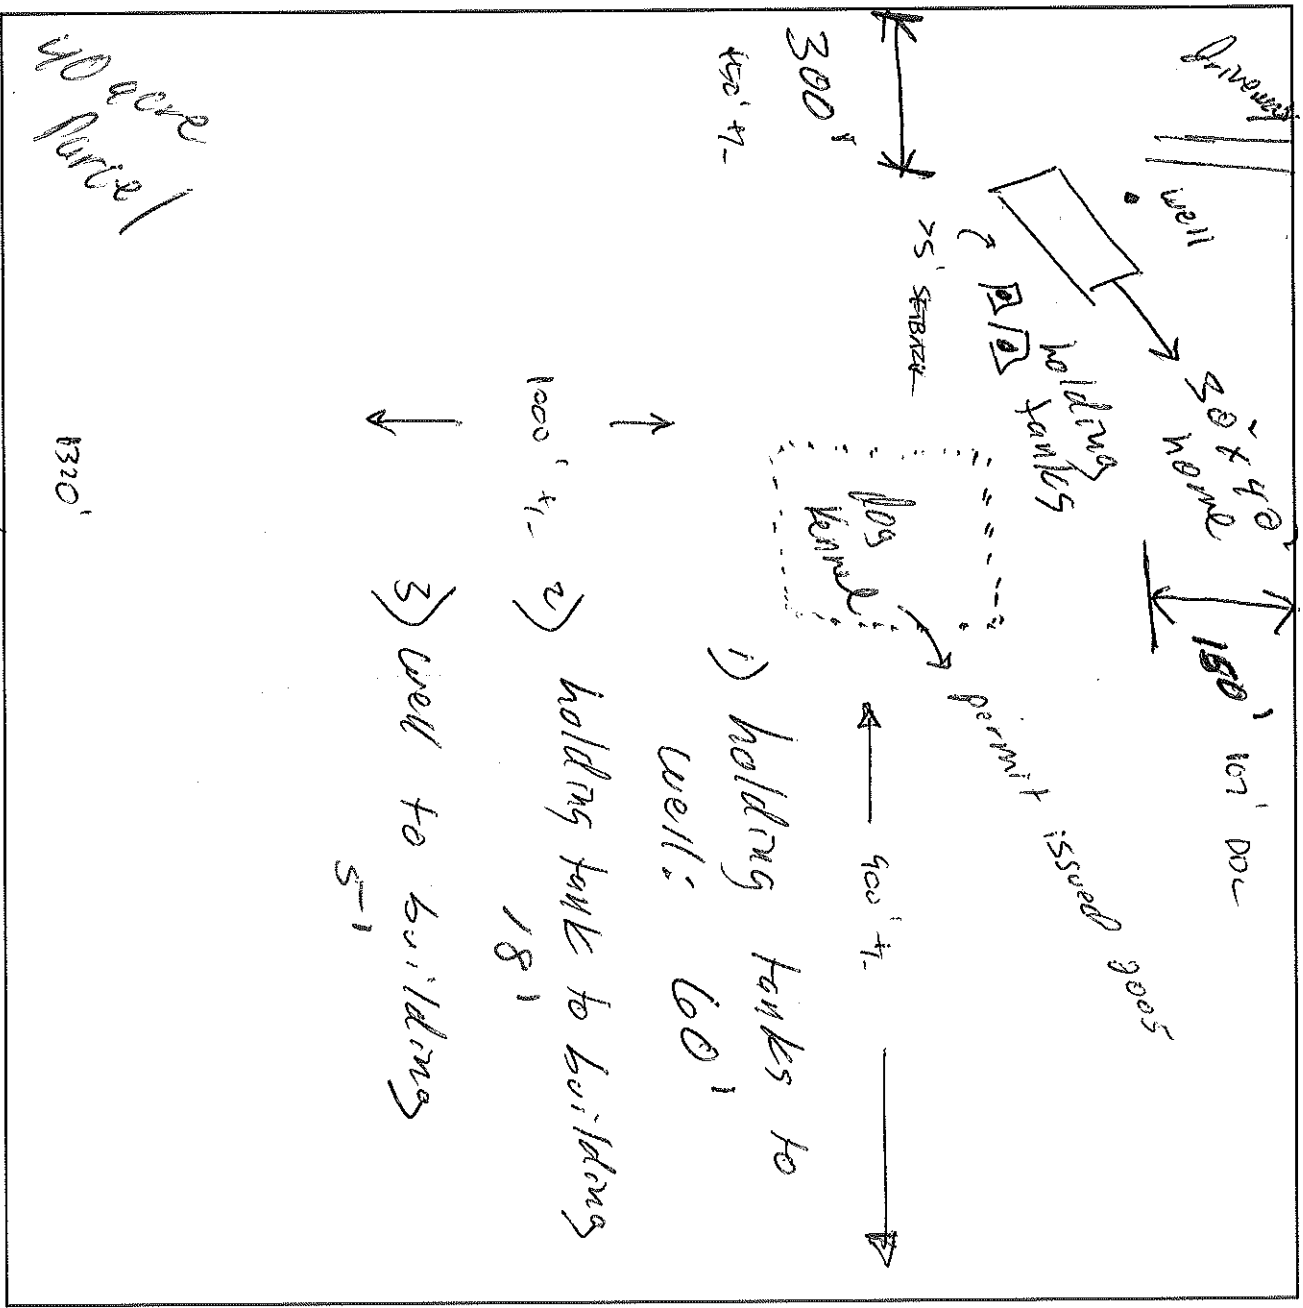 Driveway
well
30' x 40'
home
150'
107' DOC
holding
tanks
300'
450' +/-
75' SETBACK
dog
kennel
permit issued 2005
900' +/-
1000' +/-
1) holding tanks to
well: 60'
2) holding tank to building
18'
3) well to building
5'
40 acre
Parcel
1320'